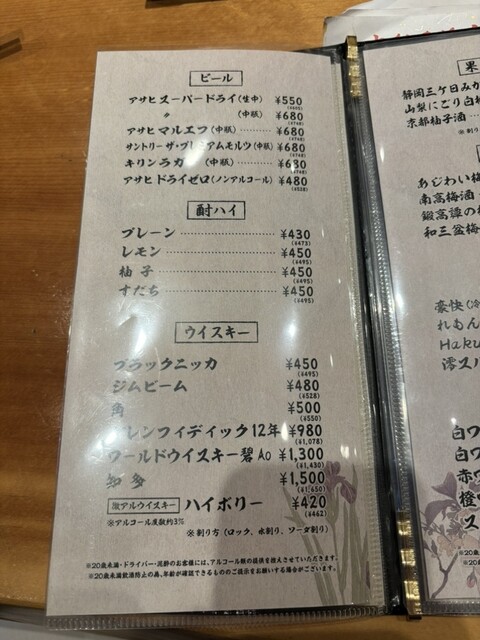 ビール
アサヒ スーパードライ(生中) ¥550
〃 (中瓶) ¥680
アサヒ マルエフ(中瓶) ¥680
サントリー ザ・プレミアムモルツ(中瓶) ¥680
キリンラガー(中瓶) ¥680
アサヒ ドライゼロ(ノンアルコール) ¥480
(¥528)
酎ハイ
プレーン ¥430
(¥473)
レモン ¥450
(¥495)
柚子 ¥450
(¥495)
すだち ¥450
(¥495)
ウイスキー
ブラックニッカ ¥450
(¥495)
ジムビーム ¥480
(¥528)
角 ¥500
(¥550)
グレンフィディック12年 ¥980
(¥1,078)
ワールドウイスキー碧Ao ¥1,300
(¥1,430)
知多 ¥1,500
(¥1,650)
微アルウイスキー ハイボリー ¥420
(¥462)
※アルコール度数約3%
※割り方(ロック、水割り、ソーダ割り)
※20歳未満・ドライバー・泥酔のお客様には、アルコール類の提供を控えさせていただきます。
※20歳未満飲酒防止の為、年齢が確認できるもののご提示をお願いする場合がございます。
果
静岡三ケ日みか
山梨にごり白桃
京都柚子酒
※割り
あじわい梅
南高梅酒
鍛高譚の梅
和三盆梅
豪快(冷
れもん
Haku
澪ス
白ワ
白ワ
赤ワ
橙ワ
ス